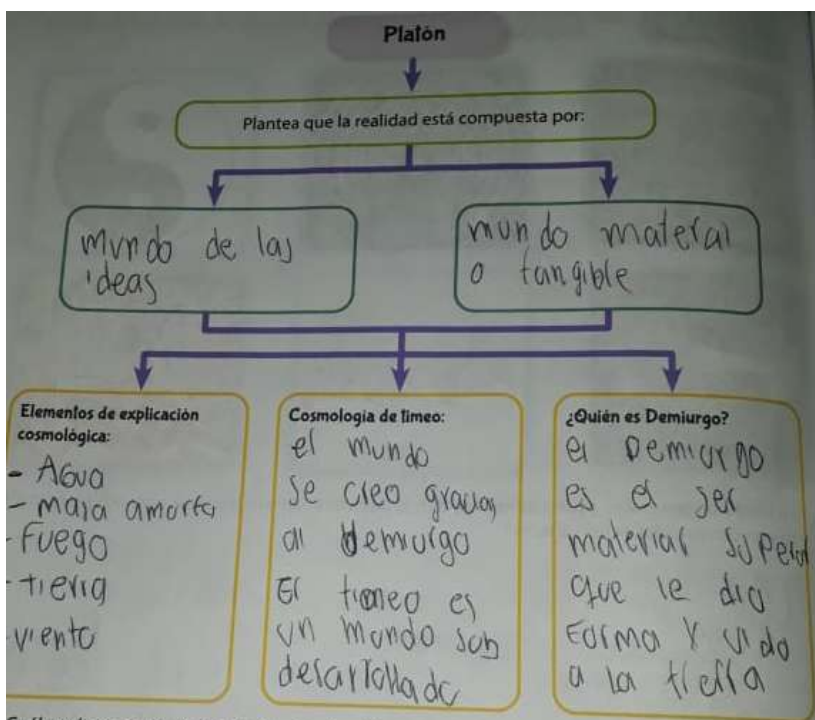 Platón
Plantea que la realidad está compuesta por:
mundo de las
ideas
mundo material
o tangible
Elementos de explicación
cosmológica:
- AGUA
- masa amorfa
- Fuego
- tierra
- viento
Cosmología de Timeo:
el mundo
se creo gracias
al Demiurgo
El timeo es
un mundo sub
desarrollado
¿Quién es Demiurgo?
el Demiurgo
es el ser
material superior
que le dio
forma y vida
a la tierra